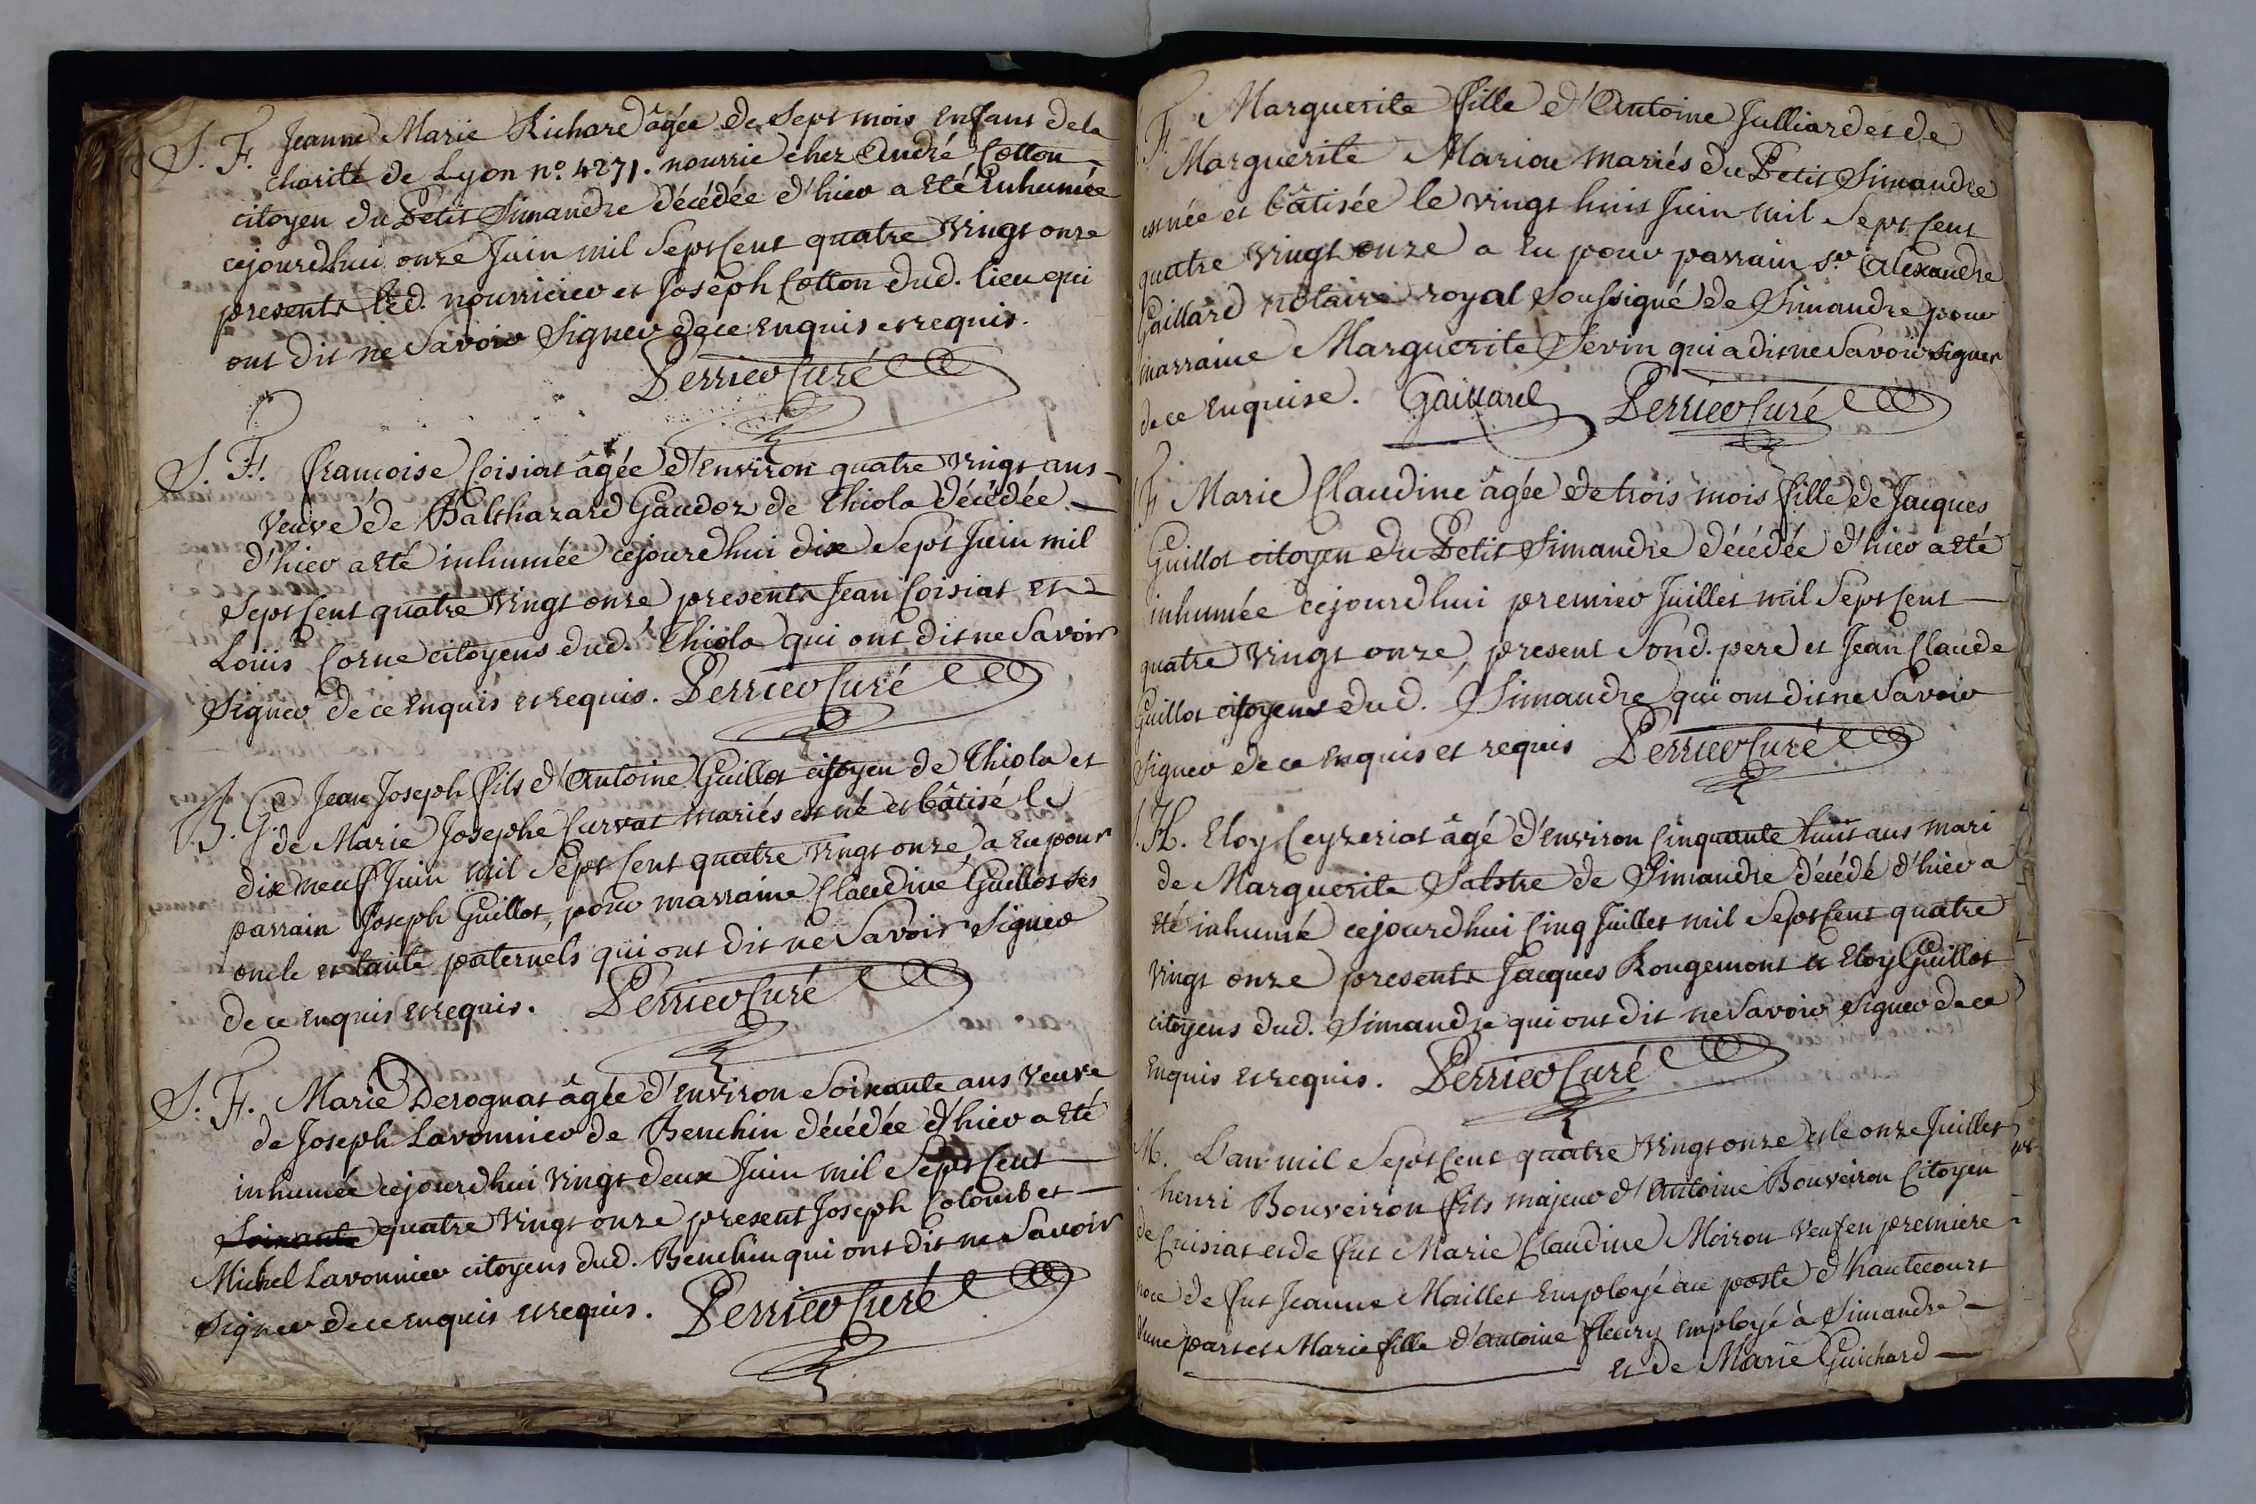 S. F. Jeanne Marie Richard âgée de Sept mois Enfant de la
charité de Lyon n.o 4271. nourrie chez André Cotton
citoyen du Petit Simandre décédée d'hier a eté Enhumée
cejourdhui onze Juin mil Sept Cent quatre Vingt onze
presents led. nourricier et Joseph Cotton dud. lieu qui
ont dit ne Savoir Signer de ce Enquis et requis.
Perrier Curé
S. F. francoise Coisiat âgée d'Environ quatre Vingt ans
Veuve de Balthazard Gaudoz de Thiola décédée
d'hier a eté inhumée cejourdhui dix Sept Juin mil
Sept Cent quatre Vingt onze presents Jean Coisiat et
Loüis Corne citoyens dud. Thiola qui ont dit ne Savoir
Signer de ce Enquis et requis. Perrier Curé
B. G. Jean Joseph fils d'Antoine Guillot citoyen de Thiola et
de Marie Josephe Curvat mariés est né et bâtisé le
dix neuf Juin mil Sept Cent quatre Vingt onze a Eu pour
parrain Joseph Guillot, pour marraine Claudine Guillot ses
oncle et tante paternels qui ont dit ne Savoir Signer
de ce Enquis et requis. Perrier Curé
S. F. Marie Derognat âgée d'Environ Soixante ans Veuve
de Joseph Lavonnier de Benchin décédée d'hier a eté
inhumée cejourdhui Vingt deux Juin mil Sept Cent
Soixante quatre Vingt onze present Joseph Colomb et
Michel Lavonnier citoyens dud. Benchin qui ont dit ne Savoir
Signer de ce Enquis et requis. Perrier Curé
F. Marguerite fille d'Antoine Julliard et de
Marguerite Marion mariés du Petit Simandre
est née et bâtisée le Vingt huit Juin mil Sept Cent
quatre Vingt onze a Eu pour parrain Sr. Alexandre
Gaillard notaire royal Soussigné de Simandre pour
marraine Marguerite Sevin qui a dit ne Savoir Signer
de ce Enquise. Gaillard Perrier Curé
S. F. Marie Claudine âgée de trois mois fille de Jacques
Guillot citoyen du Petit Simandre décédée d'hier a eté
inhumée cejourdhui premier Juillet mil Sept Cent
quatre Vingt onze, present Sond. pere et Jean Claude
Guillot citoyens dud. Simandre qui ont dit ne Savoir
Signer de ce Enquis et requis Perrier Curé
S. H. Eloy Ceyzeriat âgé d'Environ Cinquante huit ans mari
de Marguerite Salstre de Simandre décédé d'hier a
eté inhumé cejourdhui Cinq Juillet mil Sept Cent quatre
Vingt onze presents Jacques Rougemont et Eloy Guillot
citoyens dud. Simandre qui ont dit ne Savoir Signer de ce
Enquis et requis. Perrier Curé
M. L'an mil Sept Cent quatre Vingt onze et le onze Juillet
henri Bouveiron fils majeur d'Antoine Bouveiron Citoyen
de Cuisiat et de fut Marie Claudine Moiron Veuf en premiere
noce de fut Jeanne Maillet Employé au poste d'hautecourt
d'une part et Marie fille d'Antoine fleury Employé à Simandre
et de Marie Guichard